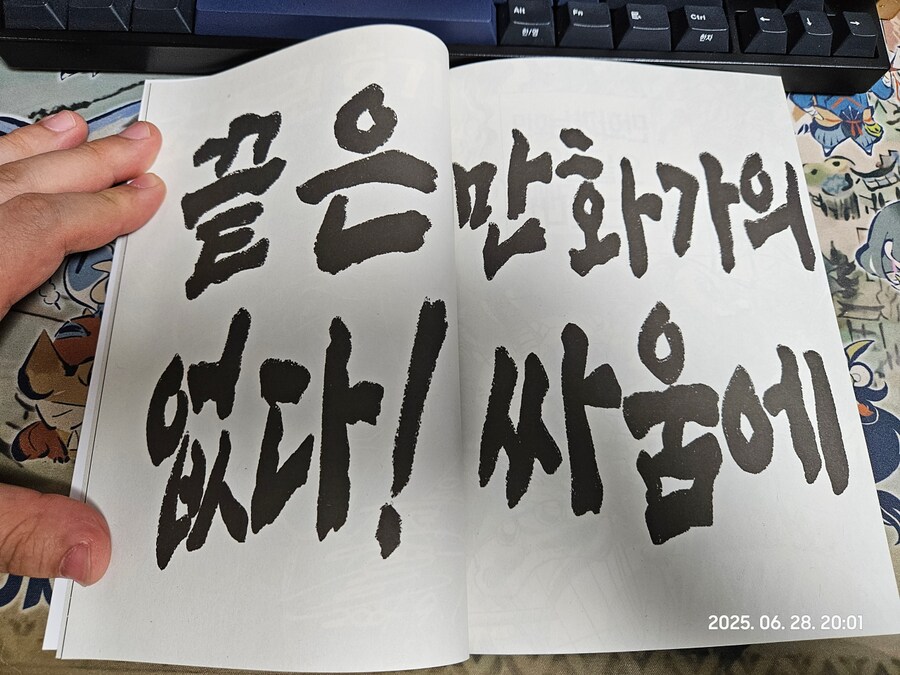 Alt
한/영
Fn
Ctrl
한자
만화가의
싸움에
끝은
없다!
2025. 06. 28. 20:01